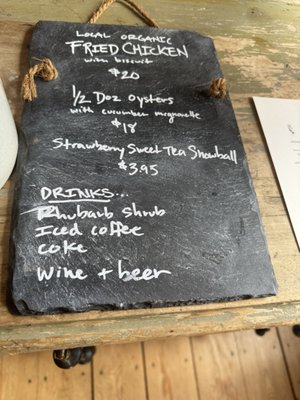 LOCAL ORGANIC
FRIED CHICKEN
with biscuit
$20
1/2 Doz oysters
with cucumber mignonette
$18
Strawberry Sweet Tea Snowball
$3.95
DRINKS...
Rhubarb shrub
Iced coffee
coke
wine + beer